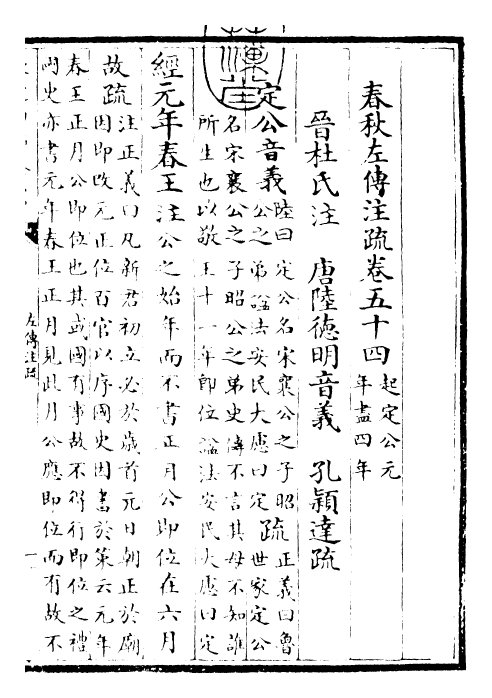 春秋左傳注疏卷五十四 起定公元年盡四年
晉杜氏注 唐陸德明音義 孔穎達疏
定公音義 陸曰定公名宋襄公之子昭公之弟諡法安民大慮曰定 疏 正義曰魯世家定公
名宋襄公之子昭公之弟史傳不言其母不知誰
所生也以敬王十一年即位諡法安民大慮曰定
經元年春王 注 公之始年而不書正月公即位在六月
故 疏 注正義曰凡新君初立必於歲首元日朝正於廟
因即改元正位百官以序國史因書於策云元年
春王正月公即位也其或國有事故不得行即位之禮
史亦書元年春王正月見此月公應即位而有故不
左傳注疏
一